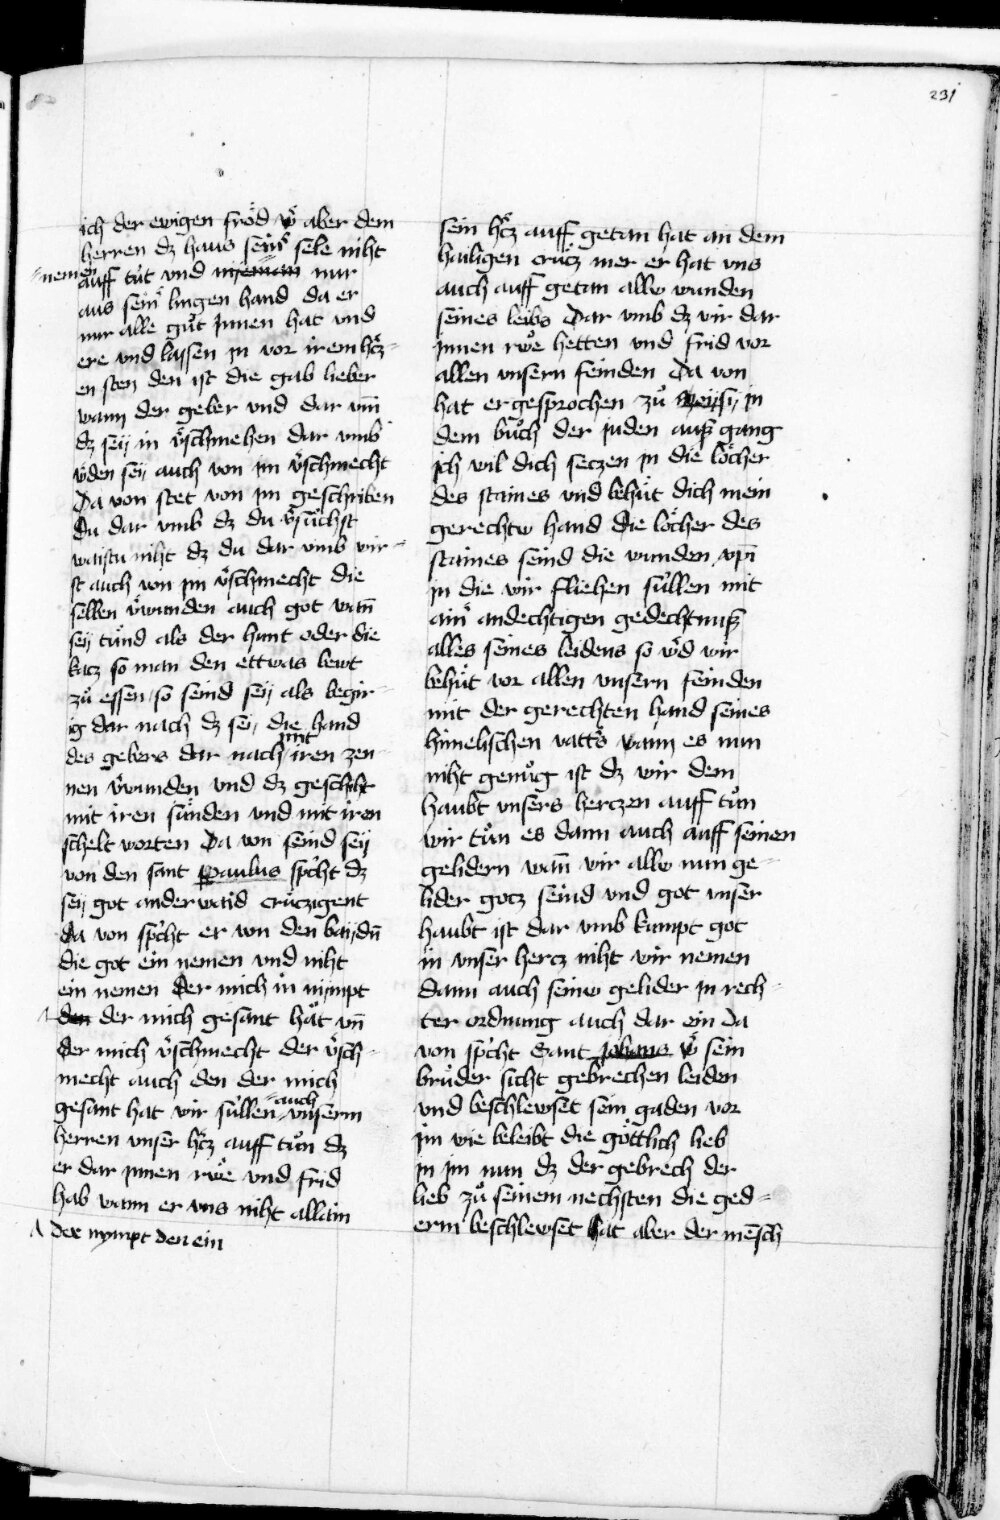 231
ich der ewigen fröd wͤ aber dem
herren dz haus seinͤ sele niht
auff tüt vnd nyeman nur
nemen
aus seinͤ lingen hand da er
nur alle guͦt Innen hat vnd
ere vnd lassen in vor irem hͤcz-
en sten den ist die gab lieber
wann der geber vnd dar vm̄
dz seij in vͤschmehen dar vmb
wͤden seij auch von im vͤschmecht
Da von stet von im geschriben
Du dar vmb dz du vͤsuͤchst
waistu niht dz du dar vmb wir-
st auch von im vͤschmecht die
sellen vͤwunden auch got wan̄
seij tuͤnd als der hunt oder die
kacz so man den ettwas bewt
zuͦ essen so seind seij als begir-
ig dar nach dz sei, die hand
des gebers dar nach mit iren zen-
nen vͤwunden vnd dz geschiht
mit iren sünden vnd mit iren
schelt worten Da von seind seij
von den sant Paulus spͤcht dz
seij got anderwaid cruͤczigent
da von spͤcht er von den baijdn̄
die got ein nemen vnd niht
ein nemen Der mich in nympt
den der mich gesant hät vn̄
Der mich vͤschmecht der vͤsch-
mecht auch den der mich
gesant hat wir süllen auch vnserm
herren vnser hͤcz auff tuͦn dz
er dar jnnen rwͤe vnd frid
hab wann er vns niht allain
Λ der nympt den ein
sein hͤcz auff getan hat an dem
hailigen cruͤcz mer er hat vns
auch auff getan allw wunden
seines leibs Dar vmb dz wir dar
jnnen rwͤe hetten vnd frid vor
allen vnsern feinden Da von
hat er gesprochen zuͦ Moijsi, in
dem buͦch der juden ausz gang
ich wil dich seczen in die löcher
des staines vnd behuͤt dich mein
gerechtw hand Die löcher des
staines seind die wunden xp̄i
in die wir fliehen süllen mit
ainͤ andechtigen gedechtnusz
alles seines leidens so wͤd wir
behuͤt vor allen vnsern feinden
mit der gerechten hand seines
himelischen vattͤs wann es nun
niht genuͦg ist dz wir dem
haubt vnsers herczen auff tuͦn
wir tuͤn es dann auch auff seinen
gelidern wan̄ wir allw nun ge-
lider gocz seind vnd got vnser
haubt ist dar vmb kumpt got
in vnser hercz niht wir nemen
dann auch seinw gelider in rech-
ter ordnung auch dar ein Da
von spͤcht Sant johans wͤ sein
bruͦder sicht gebrechen leiden
vnd beschlewset sein gaden vor
im wie beleibt die göttlich lieb
in im nun dz der gebrech der
lieb zuͦ seinem nechsten die ged-
erm beschlewset hat aber der mēsch